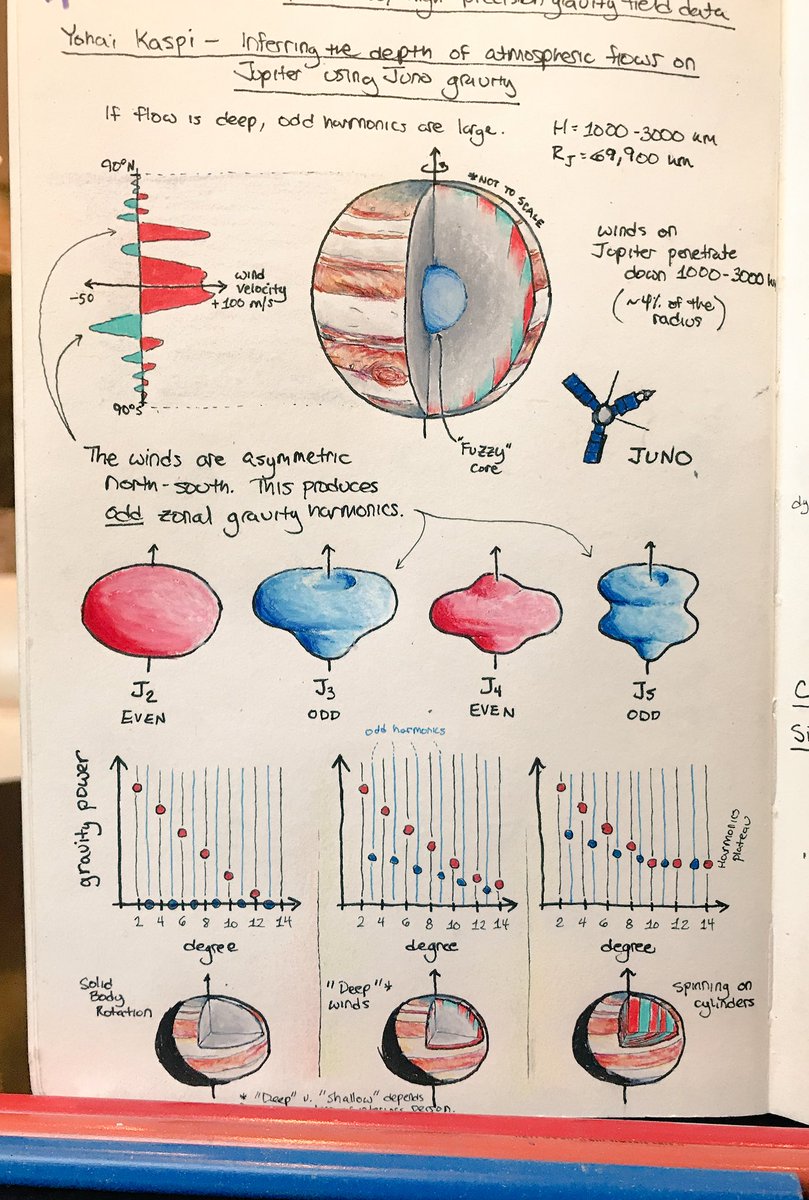 precision gravity field data
Yohai Kaspi – Inferring the depth of atmospheric flows on
Jupiter using Juno gravity
If flow is deep, odd harmonics are large.
H = 1000-3000 km
RJ = 69,900 km
90°N
*NOT TO SCALE
wind
velocity
-50
+100 m/s
90°S
winds on
Jupiter penetrate
down 1000-3000
(~4% of the
radius)
"Fuzzy"
core
JUNO
The winds are asymmetric
north-south. This produces
odd zonal gravity harmonics.
J2
EVEN
J3
ODD
J4
EVEN
J5
ODD
odd harmonics
gravity power
Harmonics
plateau
2 4 6 8 10 12 14
degree
2 4 6 8 10 12 14
degree
2 4 6 8 10 12 14
degree
Solid
Body
Rotation
"Deep"*
winds
Spinning on
cylinders
* "Deep" v. "Shallow" depends
person.
dy
C
Si